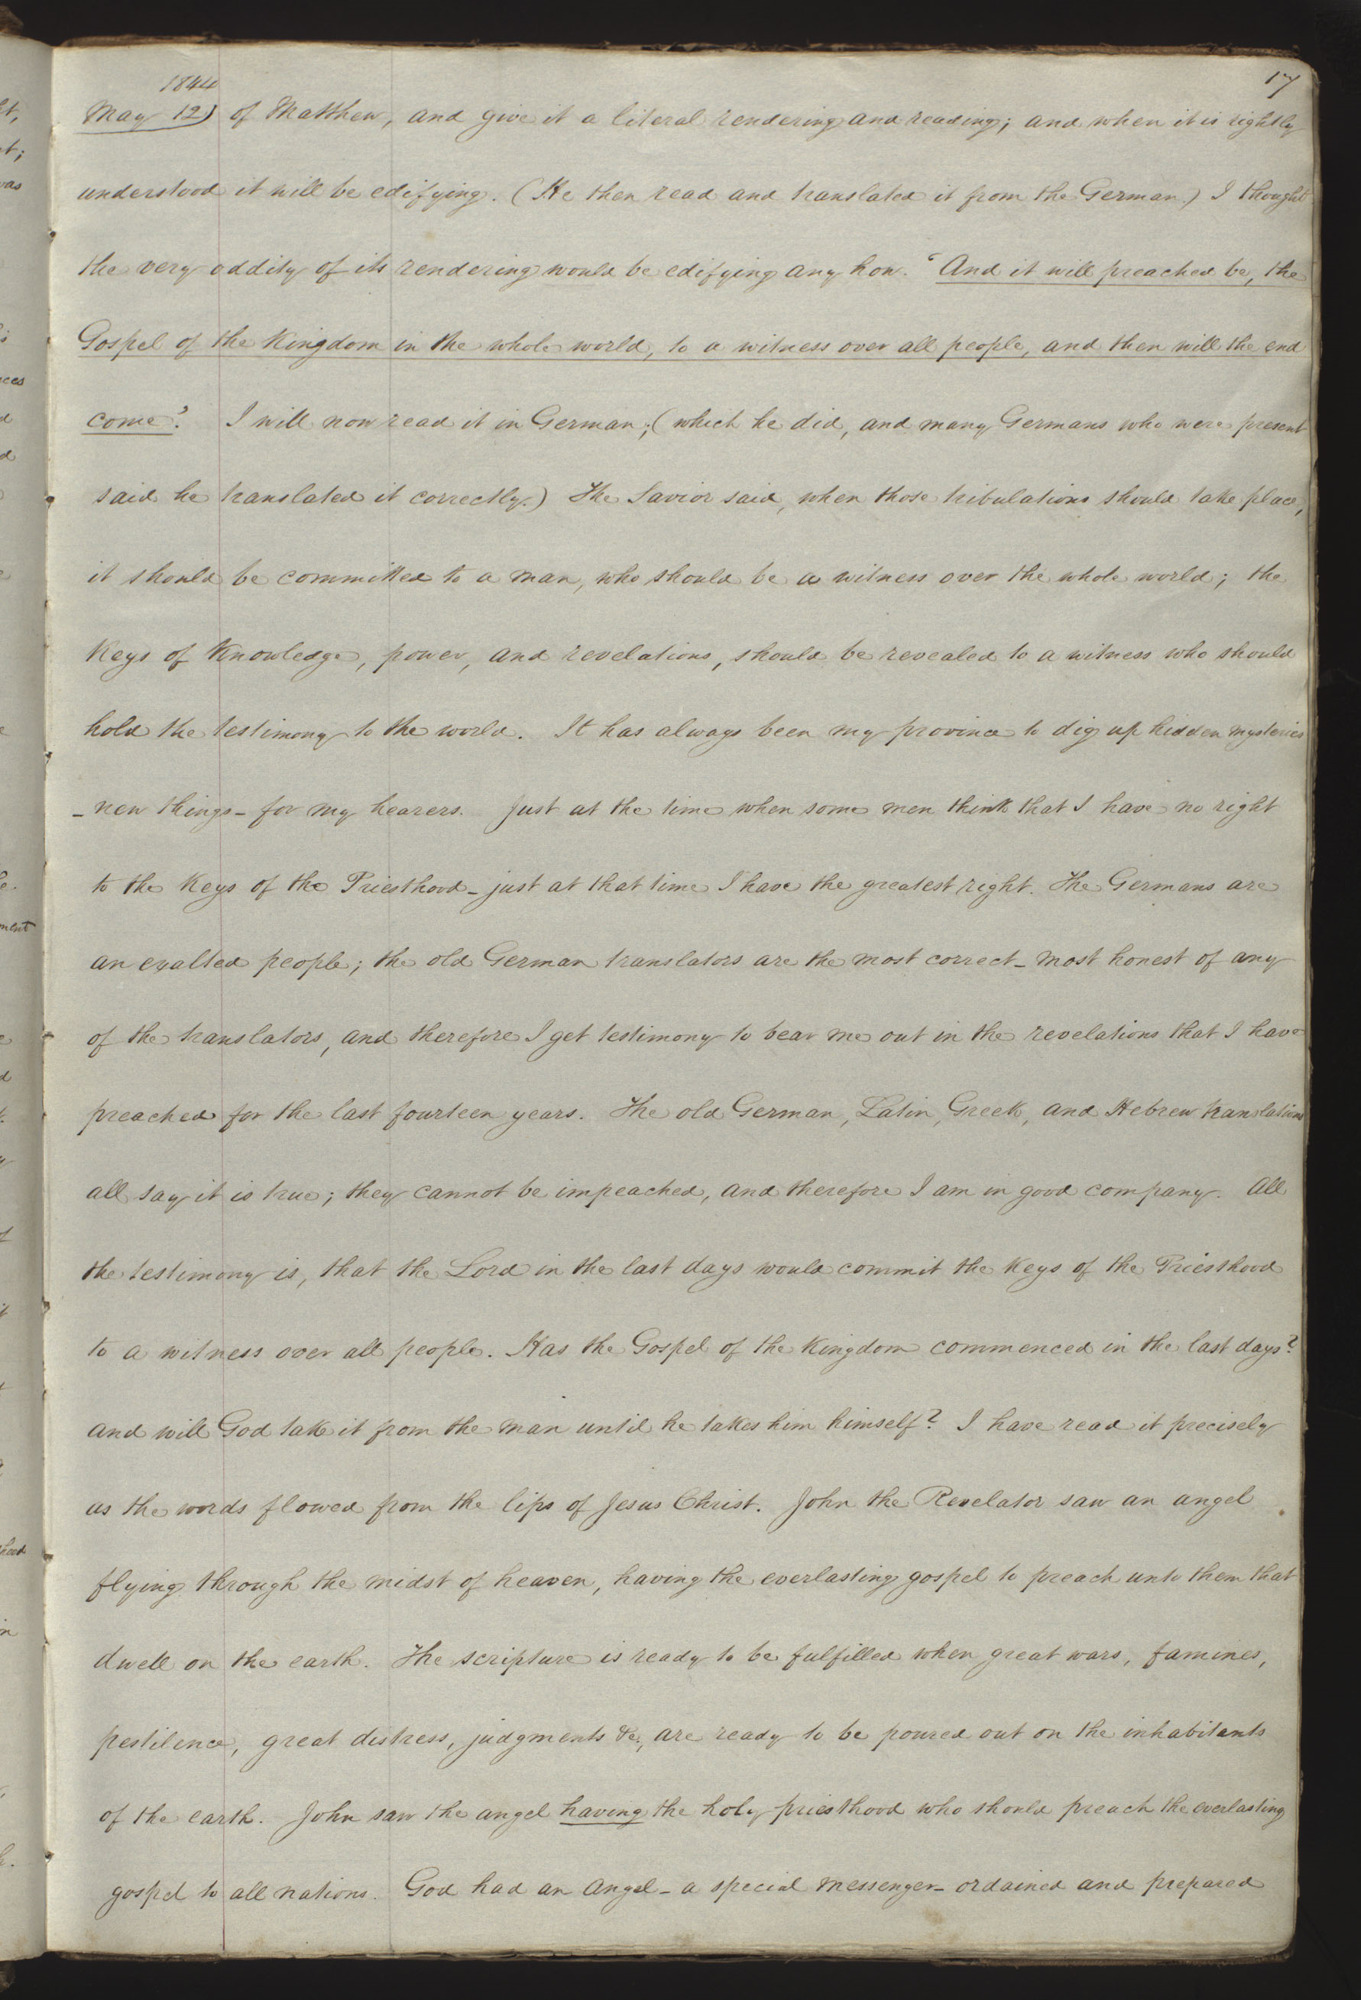 1844
17
May 12) of Matthew, and give it a literal rendering and reading; and when it is rightly
understood it will be edifying. (He then read and translated it from the German.) I thought
the very oddity of its rendering would be edifying any how. "And it will preached be, the
Gospel of the Kingdom in the whole world, to a witness over all people, and then will the end
come". I will now read it in German; (which he did, and many Germans who were present
said he translated it correctly.) The Savior said, when those tribulations should take place,
it should be committed to a man, who should be a witness over the whole world; the
Keys of Knowledge, power, and revelations, should be revealed to a witness who should
hold the testimony to the world. It has always been my province to dig up hidden mysteries
- new things - for my hearers. Just at the time when some men think that I have no right
to the Keys of the Priesthood - just at that time I have the greatest right. The Germans are
an exalted people; the old German translators are the most correct - most honest of any
of the translators, and therefore I get testimony to bear me out in the revelations that I have
preached for the last fourteen years. The old German, Latin, Greek, and Hebrew translations
all say it is true; they cannot be impeached, and therefore I am in good company. All
the testimony is, that the Lord in the last days would commit the Keys of the Priesthood
to a witness over all people. Has the Gospel of the Kingdom commenced in the last days?
and will God take it from the man until he takes him himself? I have read it precisely
as the words flowed from the lips of Jesus Christ. John the Revelator saw an angel
flying through the midst of heaven, having the everlasting gospel to preach unto them that
dwell on the earth. The scripture is ready to be fulfilled when great wars, famines,
pestilence, great distress, judgments &c, are ready to be poured out on the inhabitants
of the earth. John saw the angel having the holy priesthood who should preach the everlasting
gospel to all nations. God had an Angel - a special messenger - ordained and prepared